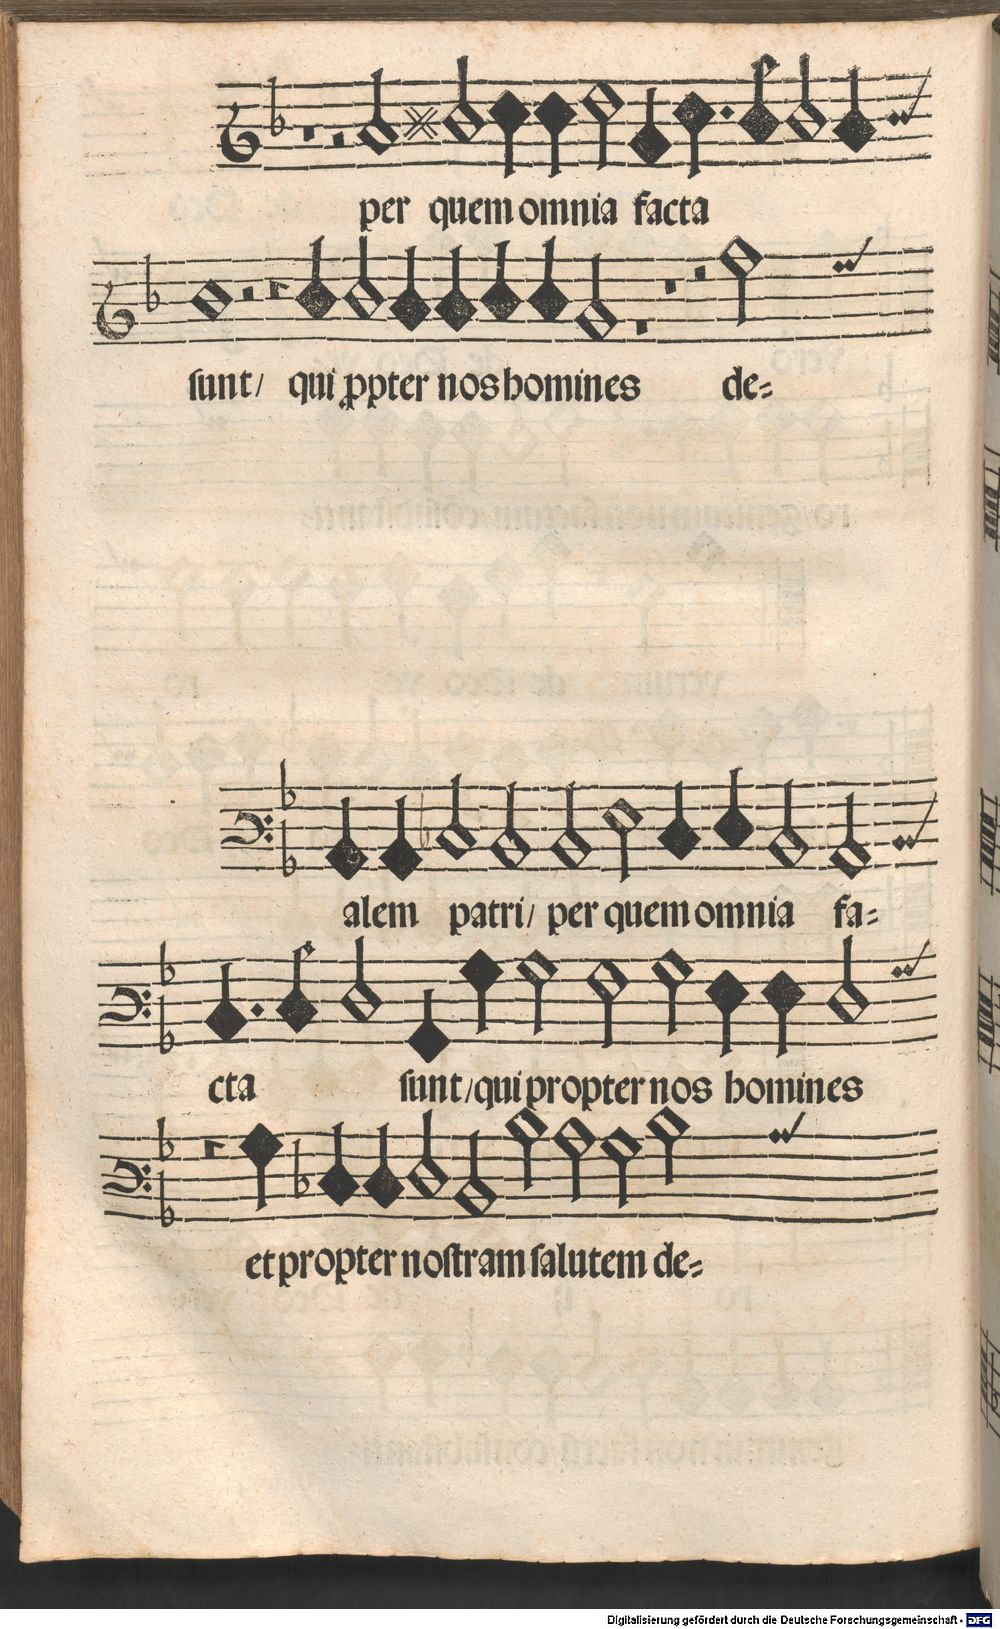 per quem omnia facta
sunt/ qui ꝓpter nos homines de=
alem patri/ per quem omnia fa=
cta sunt/qui propter nos homines
et propter nostram salutem de=
Digitalisierung gefördert durch die Deutsche Forschungsgemeinschaft - DFG